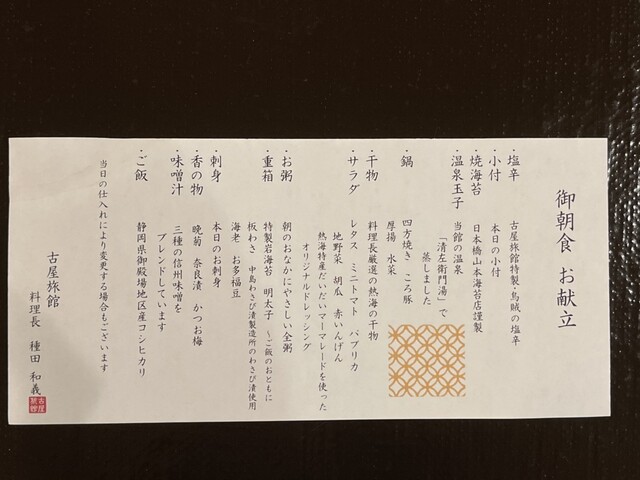 御朝食 お献立
・塩辛 古屋旅館特製・烏賊の塩辛
・小付 本日の小付
・焼海苔 日本橋山本海苔店謹製
・温泉玉子 当館の温泉
「清左衛門湯」で
蒸しました
・鍋 四方焼き ころ豚
厚揚 水菜
・干物 料理長厳選の熱海の干物
・サラダ レタス ミニトマト パプリカ
地野菜 胡瓜 赤いんげん
熱海特産だいだいマーマレードを使った
オリジナルドレッシング
・お粥 朝のおなかにやさしい全粥
・重箱 特製岩海苔 明太子 ～ご飯のおともに
板わさ 中島わさび漬製造所のわさび漬使用
海老 お多福豆
・刺身 本日のお刺身
・香の物 晩菊 奈良漬 かつお梅
・味噌汁 三種の信州味噌を
ブレンドしています
・ご飯 静岡県御殿場地区産コシヒカリ
当日の仕入れにより変更する場合もございます
古屋旅館
料理長 種田 和義